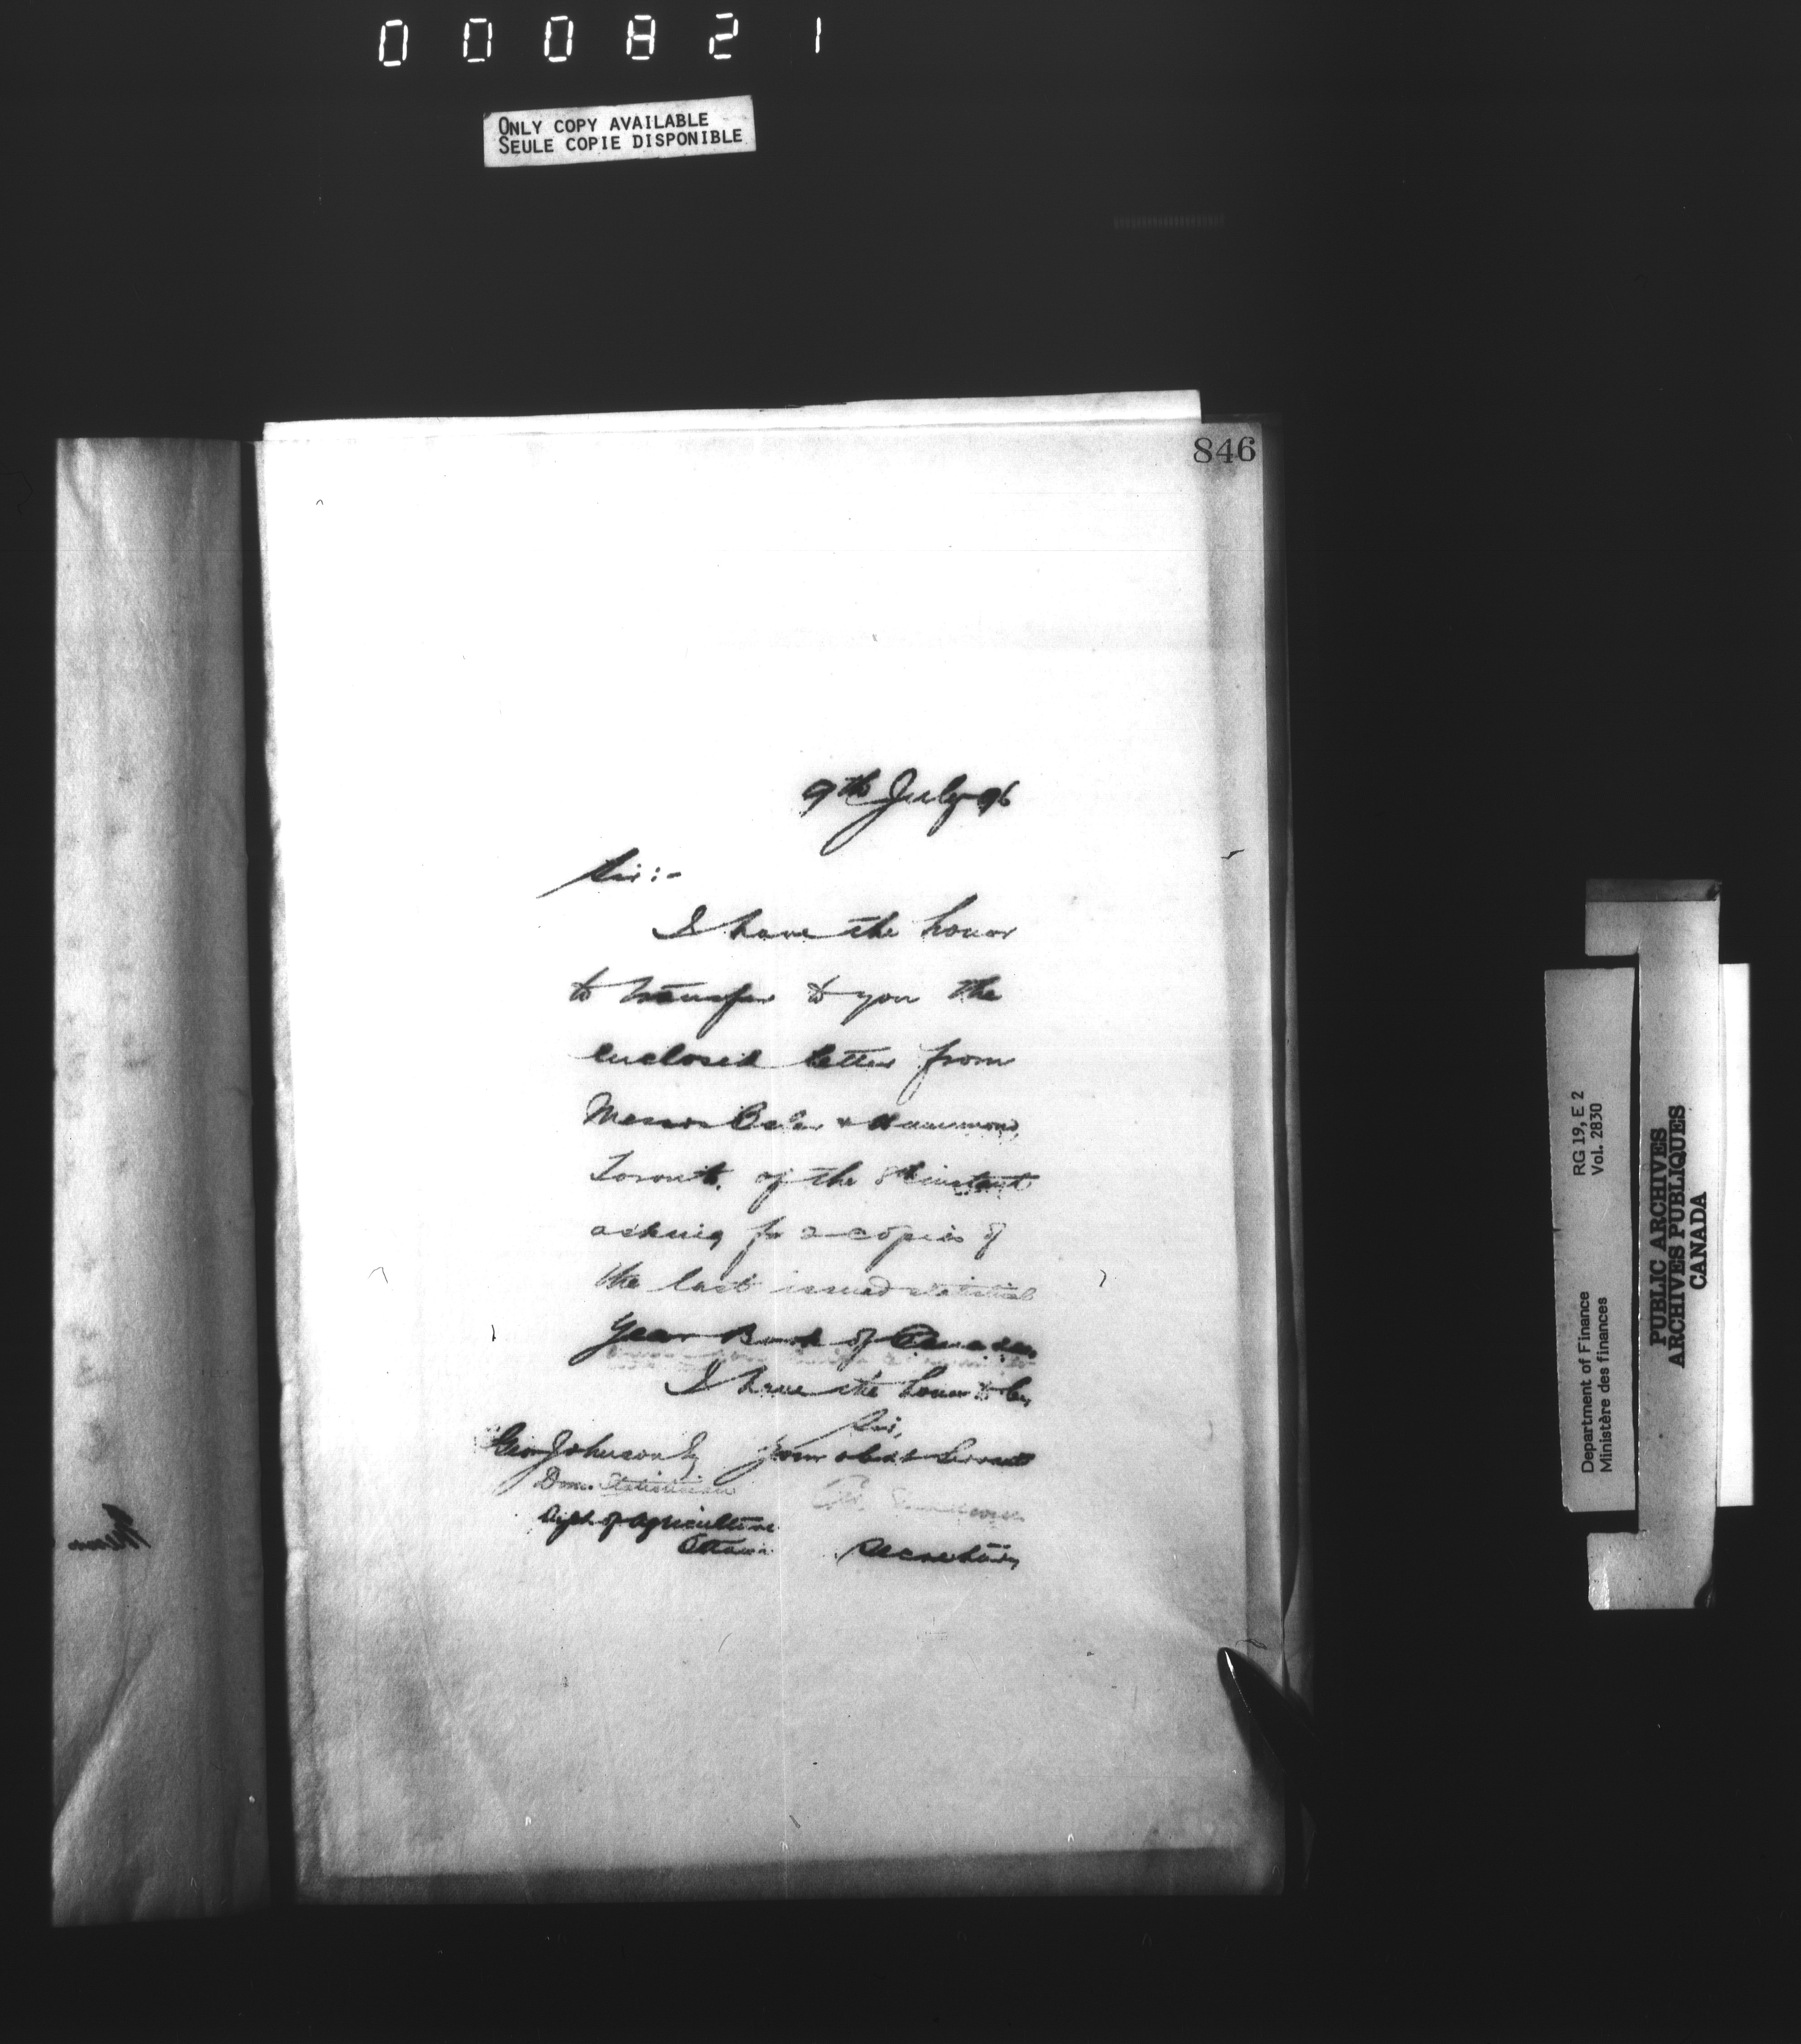 000821
ONLY COPY AVAILABLE
SEULE COPIE DISPONIBLE
846
9th July 96
Sir:-
I have the honor
to transfer to you the
enclosed letter from
Messrs & Hammond,
Toronto, of the 8th instant
asking for 2 copies of
the last issued Statistical
Year Book of Canada
I have the honor to be,
Sir,
Geo Johnson Esq Your obdt Servant
Dom. Statistician
Dept. of Agriculture
Ottawa Secretary
RG 19, E 2
Vol. 2830
Department of Finance
Ministère des finances
PUBLIC ARCHIVES
ARCHIVES PUBLIQUES
CANADA